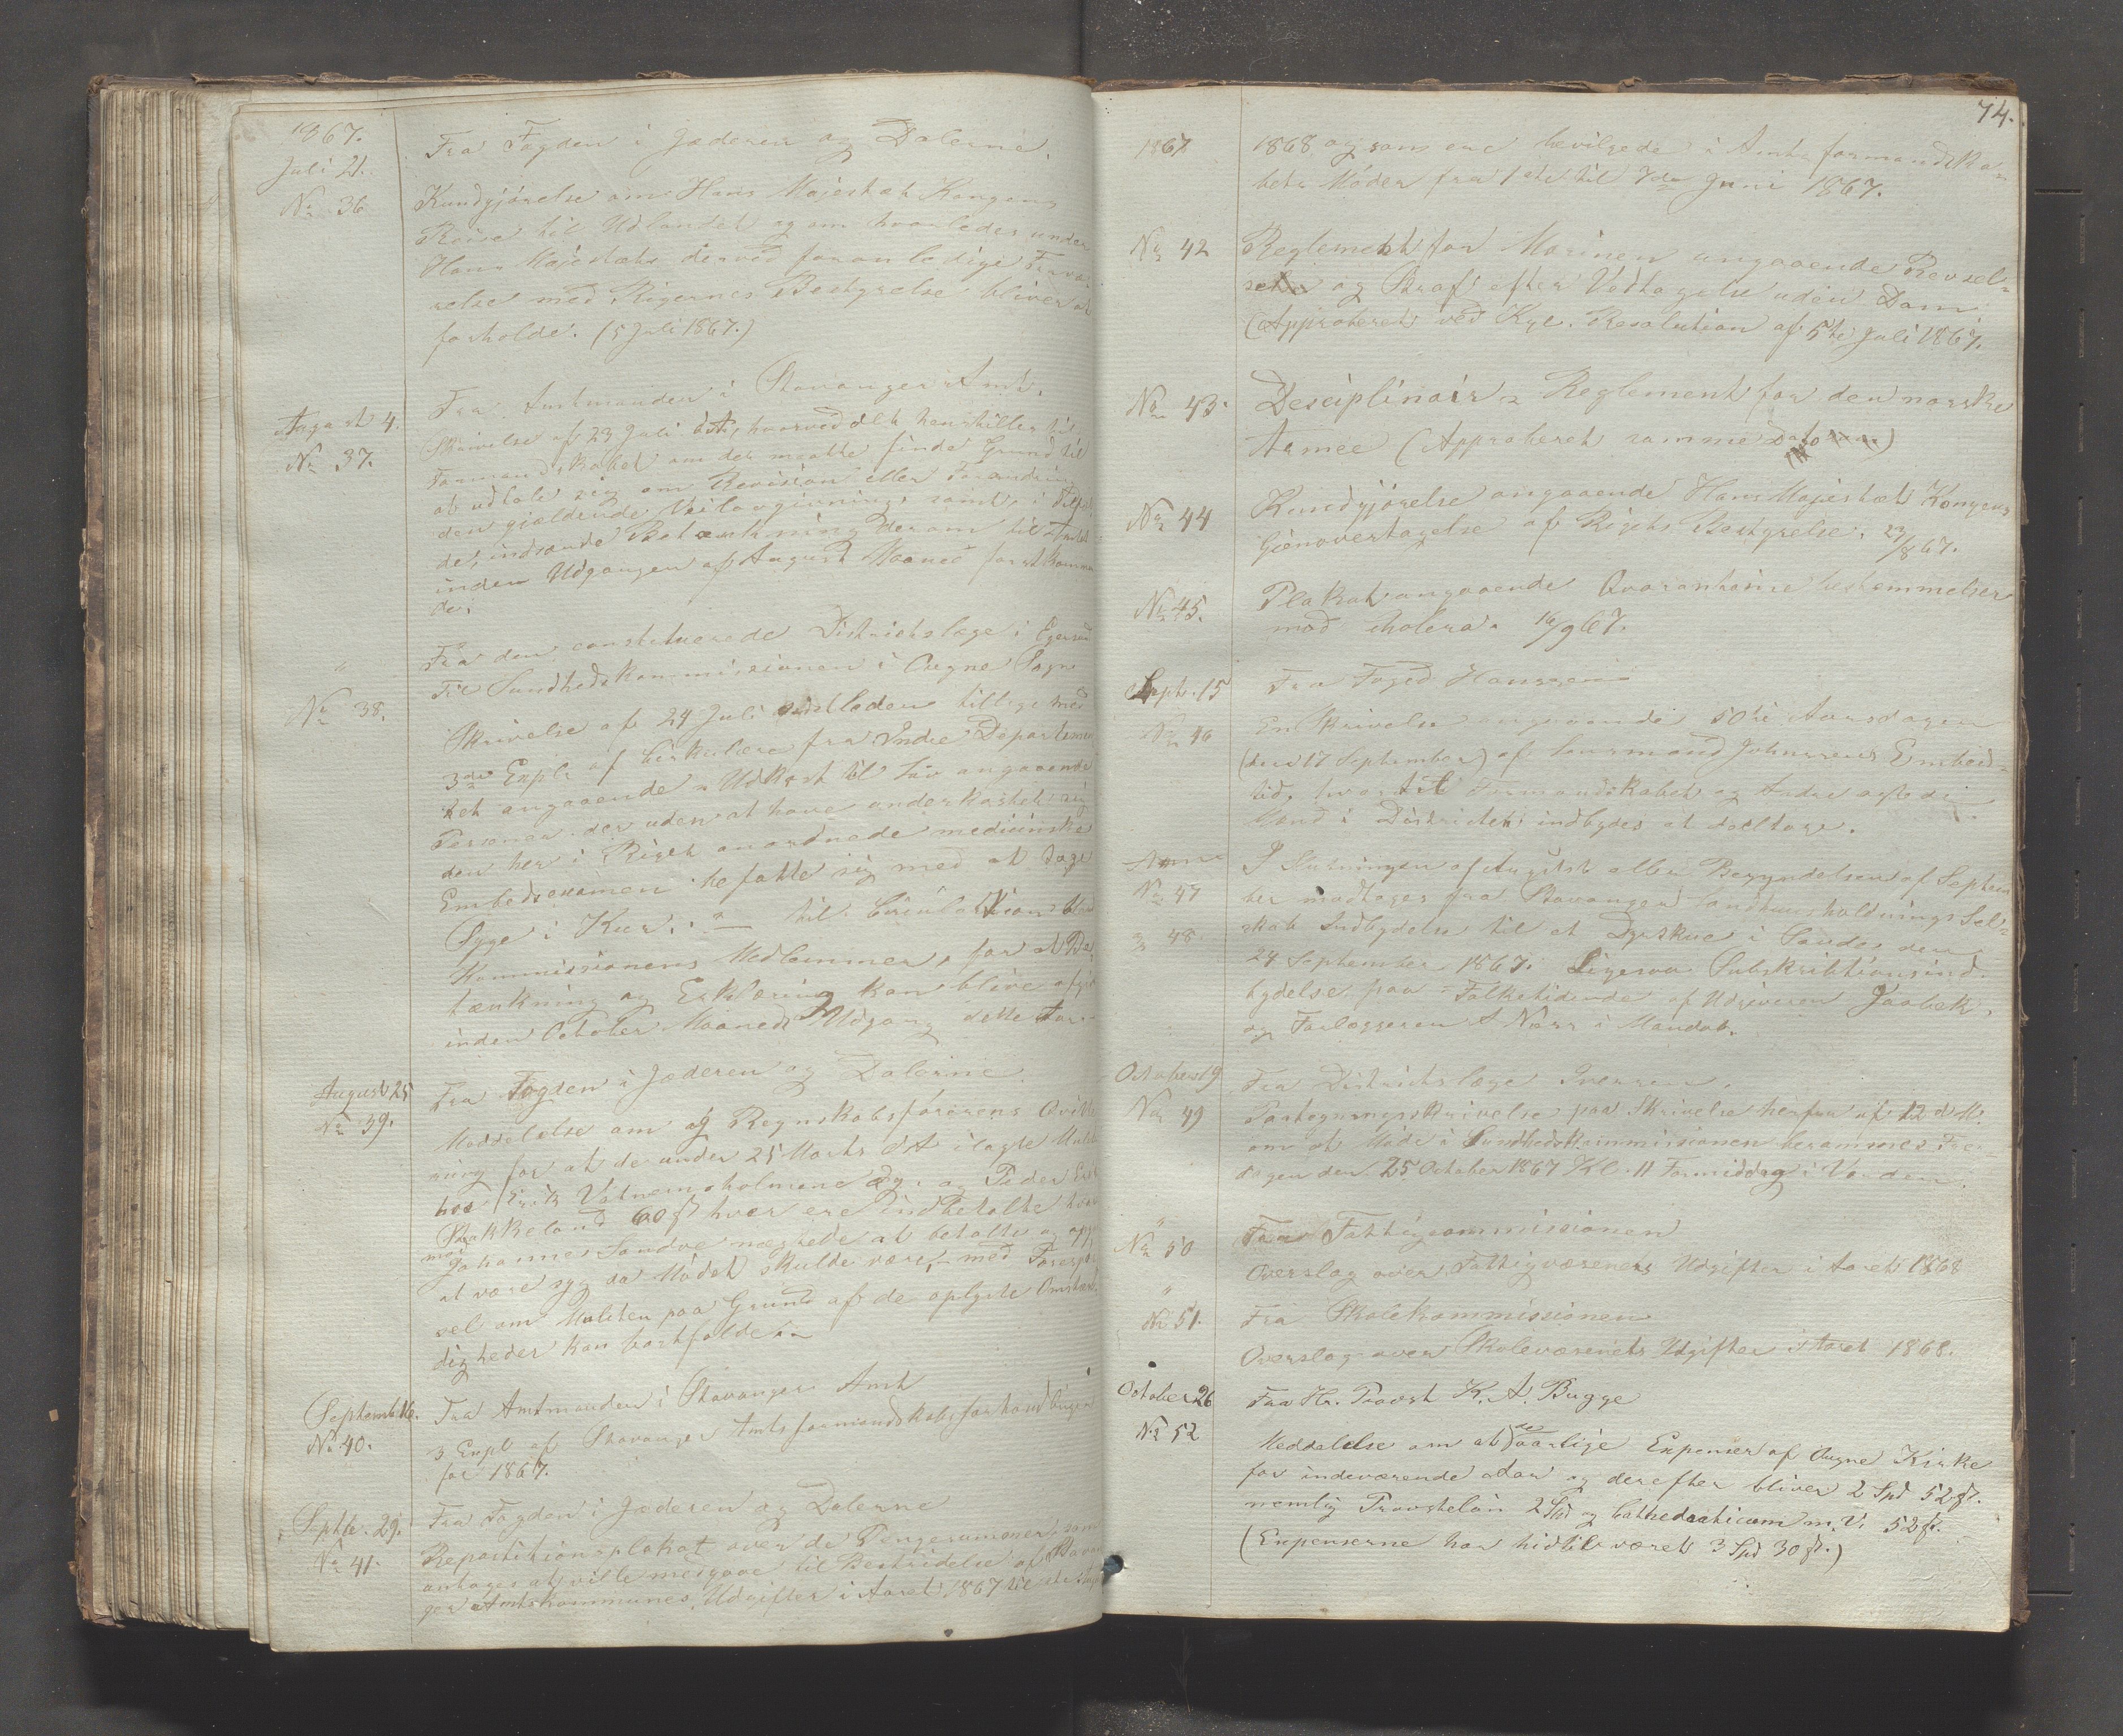 1867.
Juli 21.
No 36
Fra Fogden i Jæderen og Dalerne.
Kundgjørelse om Hans Majestæt Kongens
Reise til Udlandet og om hvorledes under
Hans Majestæts derved foranledige Fravæ-
relse med Rigernes Bestyrelse bliver at
forholde. (5 Juli 1867.)
August 4.
No 37.
Fra Amtmanden i Stavanger Amt.
Skrivelse af 23 Juli dA, hvorved det henstilles til
Formandskabet om der maatte finde Grund til
at udtale sig om Revision eller Forandring
den gjældende Veilovgivning, samt, i Tilfæl
de, indsende Betænkning derom til Amtet
inden Udgangen af August Maaned førstkommen
de.
"
No 38.
Fra den constituerede Districtslæge i Egersund
Til Sundhedskommissionen i Ougne Sogn
Skrivelse af 24 Juli sidstleden tillige med
3de Expl. af Cirkulære fra Indre Departemen
tet angaaende "Udkast til Lov angaaende
Personer der uden at have underkastet sig
den her i Riget anordnede medicinske
Embedsexamen befatte sig med at tage
Syge i Kur." — til Circulation blandt
Kommissionens Medlemmer, for at Be
tænkning og Erklæring kan blive afgivet
inden October Maaneds Udgang dette Aar.
August 25
No 39.
Fra Fogden i Jæderen og Dalerne
Meddelelse om og Regnskabsførerens Qvitte
ring for at de under 25 Marts dA ilagte Mulkter
hos Erik Vatnemsholmene og Peder
Stokkeland 60 ß hver ere indbetalte hvor
mod Johannes Sandve nægtede at betale og opgav
at være syg da Mødet skulde være, — med Forespør
sel om Mulkten paa Grund af de oplyste Omstæn
digheder kan bortfalde.
Septemb. 16.
No 40.
Fra Amtmanden i Stavanger Amt
3 Expl af Stavanger Amtsformandskabsforhandlinger
for 1867.
Septbr. 29.
No 41.
Fra Fogden i Jæderen og Dalerne
Repartitionsplakat over de Pengesummer, som
antages at ville medgaae til Bestridelse af Stavan
ger Amtskommunes Udgifter i Aaret 1867 til
74.
1867
1868 og som ere bevilgede i Amtsformandska-
bets Møder fra 1ste til 7de Juni 1867.
No 42
Reglement for Marinen angaaende Revsel-
se og Straf efter Vedtagelse uden Dom.
(Approberet ved Kgl. Resolution af 5te Juli 1867.
No 43.
Desciplinair-Reglement for den norske
Armee (Approberet samme Dato)
No 44
Kundgjørelse angaaende Hans Majestæt Kongens
Gjenovertagelse af Rigets Bestyrelse. 23/8 67.
No 45.
Plakat angaaende Qvarantaine bestemmelser
mod cholera. 16/9 67.
Septr. 15
No 46
Fra Foged Hanssen
En Skrivelse angaaende 50te Aarsdagen
(den 17 September) af Lensmand Johnsens Embeds-
tid, hvortil Formandskabet og Andre agtede
Mænd i Districtet indbydes at deeltage.
No 47
" 48.
I Slutningen af August eller Begyndelsen af Septem
ber modtages fra Stavanger Landhuusholdnings Sel-
skab Indbydelse til et Dyrskue i Sandes den
24 September 1867. Ligesaa Subskriktionsind-
bydelse paa "Folketidende" af Udgiveren Jaabæk,
og Forlæggeren A Næss i Mandal.
October 19
No 49
Fra Districtslæge Iversen.
Paategningsskrivelse paa Skrivelse herfra af 12 d. M.
om at Møde i Sundhedskommissionen berammes Fre-
dagen den 25 October 1867 Kl. 11 Formiddag i Varden.
"
No 50
Fra Fattigcommissionen
Overslag over Fattigvæsenets Udgifter i Aaret 1868
"
No 51.
Fra Skolekommissionen
Overslag over Skolevæsenets Udgifter i Aaret 1868.
October 26
No 52
Fra Hr. Provst K. A. Bugge
Meddelelse om at de aarlige Expenser af Ougne Kirke
for indeværende Aar og derefter bliver 2 Spd 52 ß.
nemlig Provsteløn 2 Spd og Cathedraticum m. V. 52 ß.
(Expenserne har hidtil været 3 Spd 30 ß.)